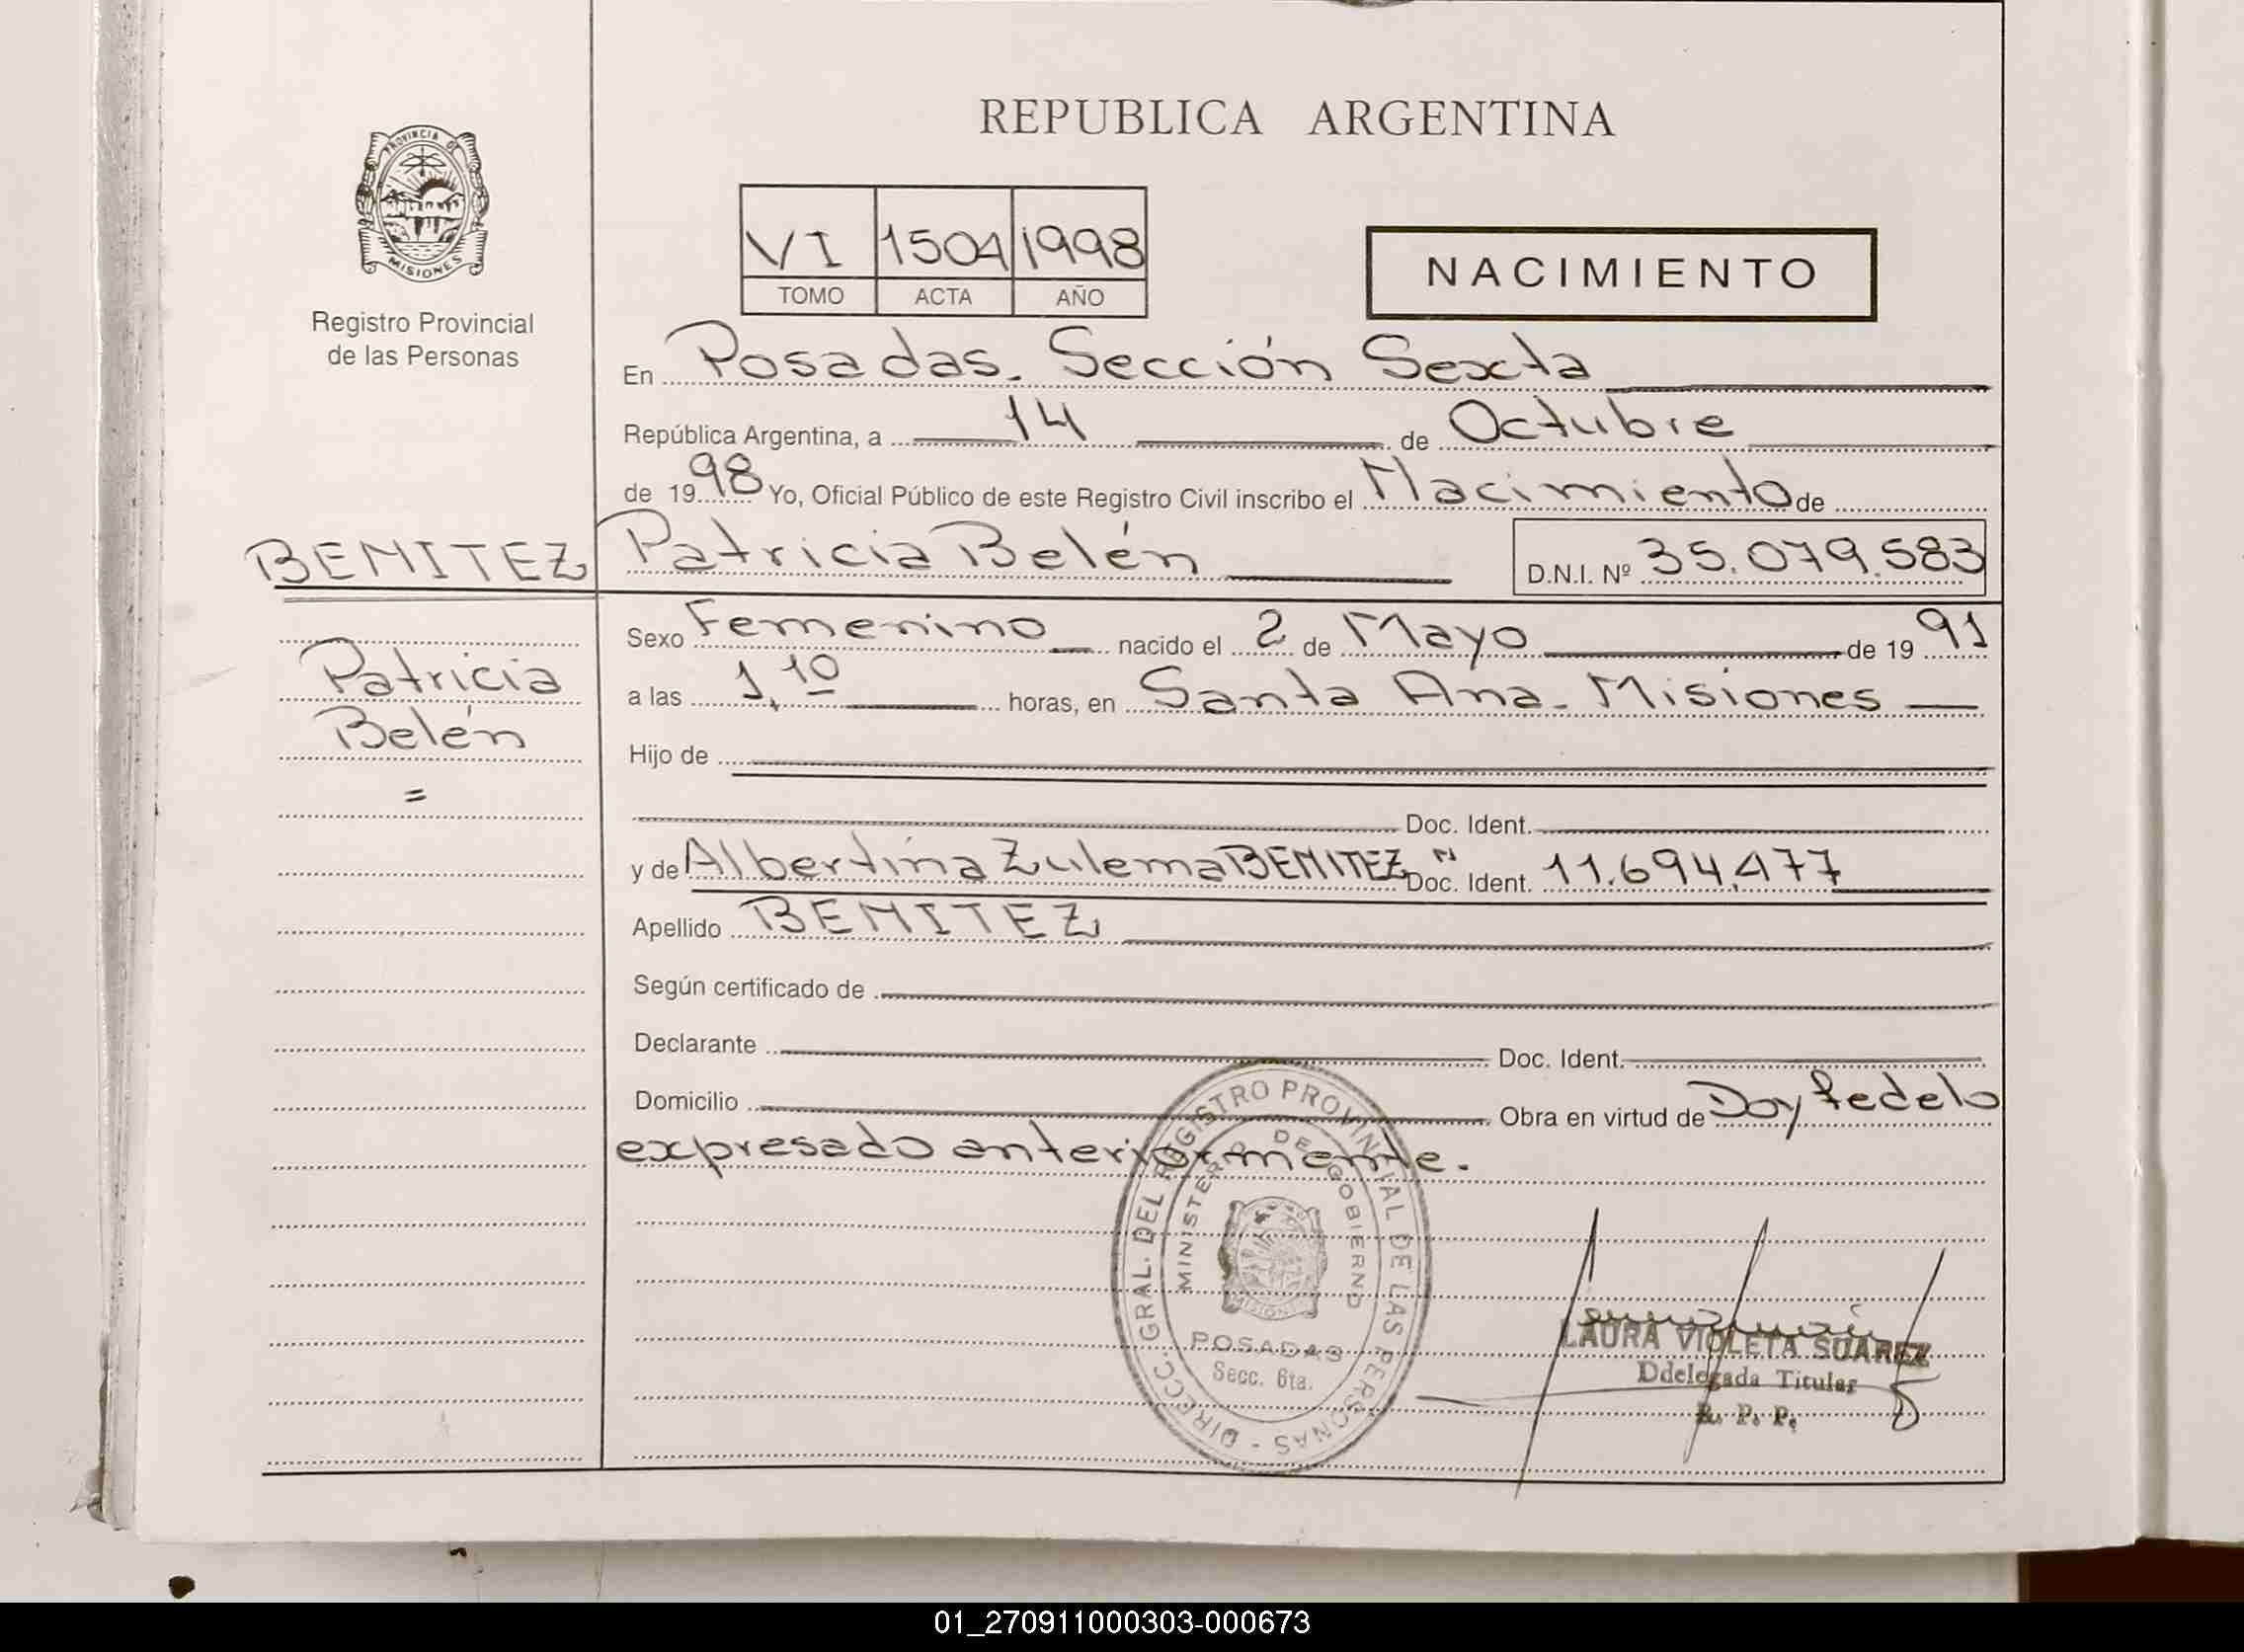 REPUBLICA ARGENTINA
PROVINCIA DE
MISIONES
Registro Provincial
de las Personas
VI 1504 1998
TOMO ACTA AÑO
NACIMIENTO
En Posadas. Sección Sexta
República Argentina, a 14 de Octubre
de 1998 Yo, Oficial Público de este Registro Civil inscribo el Nacimiento de
BENITEZ Patricia Belén D.N.I. Nº 35.079.583
Sexo Femenino nacido el 2 de Mayo de 1991
Patricia
a las 1,10 horas, en Santa Ana. Misiones
Belén
Hijo de
=
Doc. Ident.
y de Albertina Zulema BENITEZ Doc. Ident. 11.694.477
Apellido BENITEZ
Según certificado de
Declarante Doc. Ident.
Domicilio Obra en virtud de Doy fe de lo
expresado anteriormente.
DIRECC. GRAL. DEL REGISTRO PROVINCIAL DE LAS PERSONAS -
MINISTERIO DE GOBIERNO
MISIONES
POSADAS
Secc. 6ta.
LAURA VIOLETA SUAREZ
Ddelegada Titular
R. P. P.
01_270911000303-000673